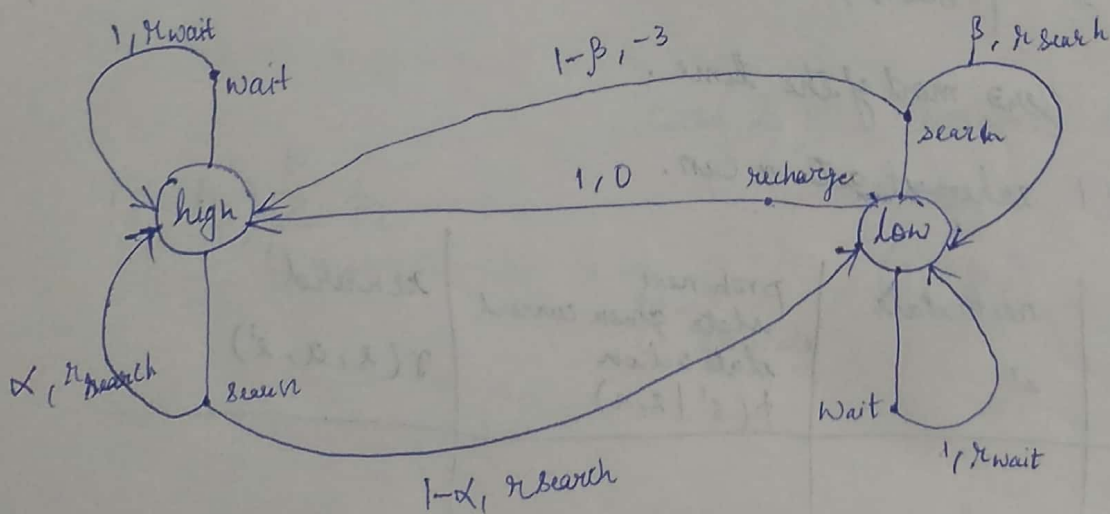 1, rwait
wait
1-β, -3
β, rsearch
search
1, 0
recharge
high
low
α, rsearch
search
wait
1, rwait
1-α, rsearch